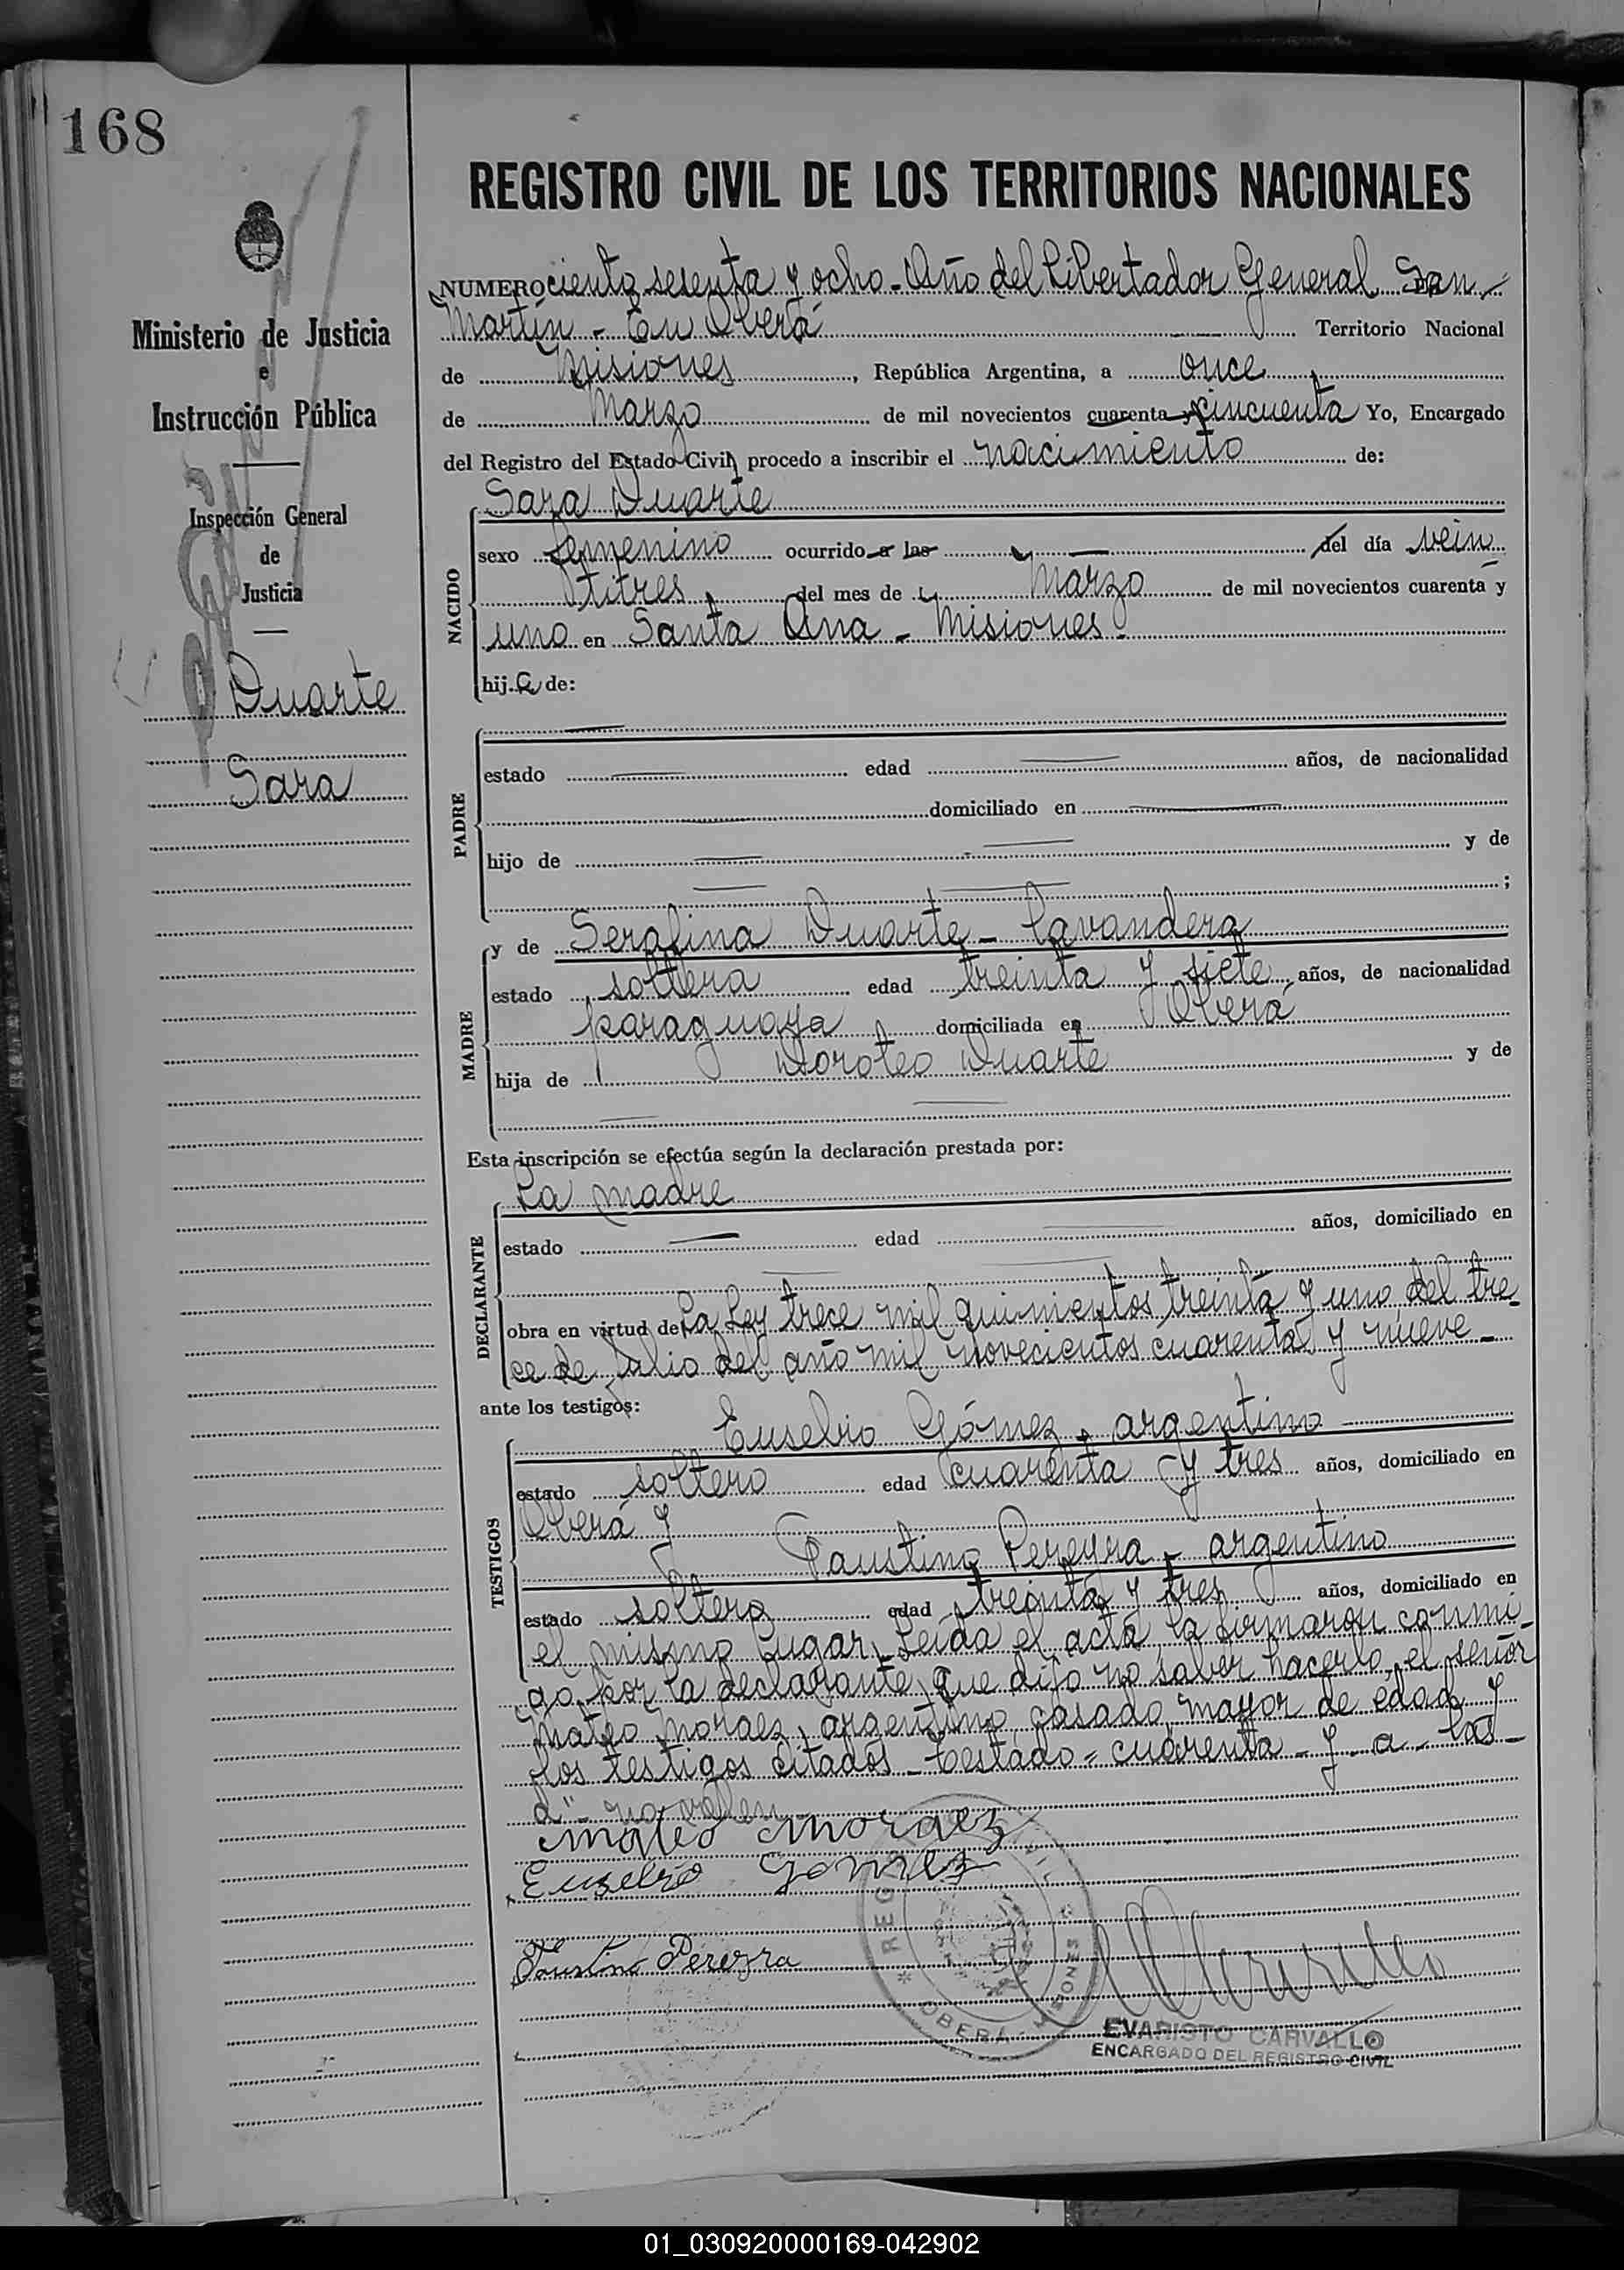 168
REGISTRO CIVIL DE LOS TERRITORIOS NACIONALES
Ministerio de Justicia
e
Instrucción Pública
Inspección General
de
Justicia
Duarte
Sara
NUMERO ciento sesenta y ocho - Año del Libertador General San
Martín - En Oberá Territorio Nacional
de Misiones, República Argentina, a once
de Marzo de mil novecientos cuarenta y cincuenta Yo, Encargado
del Registro del Estado Civil, procedo a inscribir el nacimiento de:
Sara Duarte
NACIDO
sexo femenino ocurrido a las del día vein
titres del mes de Marzo de mil novecientos cuarenta y
uno en Santa Ana - Misiones
hija de:
PADRE
estado edad años, de nacionalidad
domiciliado en
hijo de y de
;
MADRE
y de Serafina Duarte - lavandera
estado soltera edad treinta y siete años, de nacionalidad
paraguaya domiciliada en Oberá
hija de Doroteo Duarte y de
Esta inscripción se efectúa según la declaración prestada por:
DECLARANTE
La madre
estado edad años, domiciliado en
obra en virtud de La Ley trece mil quinientos treinta y uno del tre
ce de Julio del año mil novecientos cuarenta y nueve -
ante los testigos:
TESTIGOS
Eusebio Gómez, argentino
estado soltero edad cuarenta y tres años, domiciliado en
Oberá y
Faustino Pereyra - argentino
estado soltero edad treinta y tres años, domiciliado en
el mismo lugar. Leída el acta, la firmaron conmi
go, por la declarante que dijo no saber hacerlo, el señor
Mateo Moraez, argentino, casado, mayor de edad y
los testigos citados - testado = cuarenta - y - a - las -
d" - no valen
Mateo Moraez
Eusebio Gomez
Faustino Pereyra
REGIS CIVIL
OBERÁ - MISIONES
EVARISTO CARVALLO
ENCARGADO DEL REGISTRO CIVIL
01_030920000169-042902